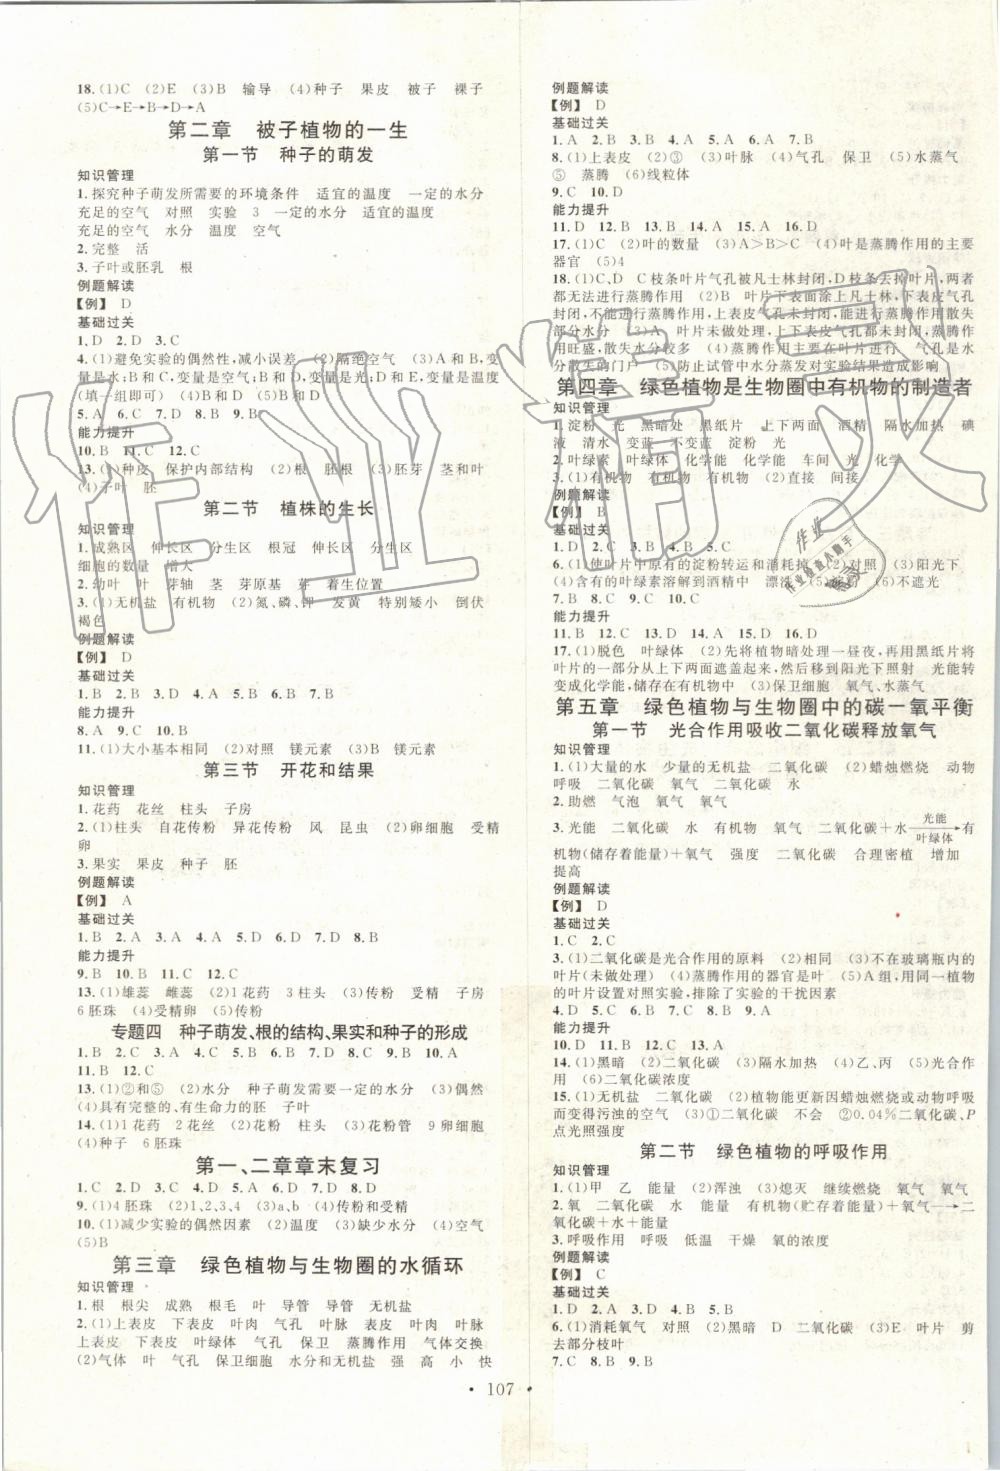 18.(1)C (2)E (3)B 输导 (4)种子 果皮 被子 裸子
(5)C→E→B→D→A
第二章 被子植物的一生
第一节 种子的萌发
知识管理
1.探究种子萌发所需要的环境条件 适宜的温度 一定的水分
充足的空气 对照 实验 3 一定的水分 适宜的温度
充足的空气 水分 温度 空气
2.完整 活
3.子叶或胚乳 根
例题解读
【例】 D
基础过关
1.D 2.D 3.C
4.(1)避免实验的偶然性,减小误差 (2)隔绝空气 (3)A和B,变
量是水;B和C,变量是空气;B和D,变量是光;B和E,变量是温度
(填一组即可) (4)种子自身
5.A 6.C 7.D 8.B 9.B
能力提升
10.B 11.C 12.C
13.(1)种皮 保护内部结构 (2)根 胚根 (3)胚芽 茎和叶
(4)子叶 胚
第二节 植株的生长
知识管理
1.成熟区 伸长区 分生区 根冠 伸长区 分生区
细胞的数量 增大
2.幼叶 叶 芽轴 茎 芽原基 芽 着生位置
3.(1)无机盐 有机物 (2)氮、磷、钾 发黄 特别矮小 倒伏
褐色
例题解读
【例】 D
基础过关
1.B 2.B 3.D 4.A 5.D 6.A 7.B
能力提升
8.A 9.C 10.C
11.(1)大小基本相同 (2)对照 镁元素 (3)B 镁元素
第三节 开花和结果
知识管理
1.花药 花丝 柱头 子房
2.(1)柱头 自花传粉 异花传粉 风 昆虫 (2)卵细胞 受精
卵
3.果实 果皮 种子 胚
例题解读
【例】 A
基础过关
1.B 2.A 3.A 4.A 5.D 6.D 7.D 8.B
能力提升
9.B 10.B 11.C 12.C
13.(1)雄蕊 雌蕊 (2)1花药 3柱头 (3)传粉 受精 子房
6胚珠 (4)受精卵 (5)传粉
专题四 种子萌发、根的结构、果实和种子的形成
1.B 2.C 3.A 4.C 5.D 6.C 7.C 8.B 9.B 10.A
11.B 12.C
13.(1)②和⑤ (2)水分 种子萌发需要一定的水分 (3)偶然
(4)具有完整的、有生命力的胚 子叶
14.(1)1花药 2花丝 (2)花粉 花药 (3)花粉管 9卵细胞
(4)种子 6胚珠
第一、二章章末复习
1.C 2.D 3.C 4.D 5.A 6.D 7.C 8.C
9.(1)4胚珠 (2)1、2、3、4 (3)a、b (4)传粉和受精
10.(1)减少实验的偶然因素 (2)温度 (3)缺少水分 (4)空气
(5)B
第三章 绿色植物与生物圈的水循环
知识管理
1.根 根尖 成熟 根毛 叶 导管 导管 无机盐
2.(1)上表皮 下表皮 叶肉 气孔 叶脉 表皮 叶肉 叶脉
上表皮 下表皮 叶绿体 气孔 保卫 蒸腾作用 气体交换
(2)气体 叶 气孔 保卫细胞 水分和无机盐 强 高 小 快
例题解读
【例】 D
基础过关
1.A 2.B 3.B 4.D 5.A 6.A 7.B
8.(1)上表皮 (2)③ (3)叶脉 (4)气孔 保卫 (5)水蒸气
⑤ 蒸腾 (6)线粒体
9.C 10.D
能力提升
11.D 12.B 13.B 14.D 15.A 16.A
17.(1)C (2)叶的数量 (3)A>B>C (4)叶是蒸腾作用的主要
器官 (5)4
18.(1)C、D C枝条叶片气孔被凡士林封闭,D枝条去掉叶片,两者
都无法进行蒸腾作用 (2)B 叶片下表面涂上凡士林,下表皮气孔
封闭,不能进行蒸腾作用,上表皮气孔未封闭,能进行蒸腾作用散失
部分水分 (3)A 叶片未做处理,上下表皮气孔都未封闭,蒸腾作
用旺盛,散失水分较多 (4)蒸腾作用主要在叶片进行 气孔是水分
散失的门户 (5)防止试管中水分蒸发对实验结果造成影响
第四章 绿色植物是生物圈中有机物的制造者
知识管理
1.淀粉 光 黑暗处 黑纸片 上下两面 酒精 隔水加热 碘
液 清水 变蓝 不变蓝 淀粉 光
2.叶绿素 叶绿体 化学能 化学能 车间 光 化学
3.(1)有机物 有机物 有机物 (2)直接 间接
例题解读
【例】 B
基础过关
1.D 2.C 3.B 4.B 5.C
6.(1)使叶片中原有的淀粉转运和消耗掉 (2)对照
(4)叶片的叶绿素溶解到酒精中 漂洗 (6)不遮光
7.B 8.B 9.C 10.C
能力提升
11.B 12.C 13.D 14.A 15.D 16.D
17.(1)脱色 叶绿体 (2)先将植物暗处理一昼夜,再用黑纸片将
叶片的一部分从上下两面遮盖起来,然后移到阳光下照射 光能转
变成化学能,储存在有机物中 (3)保卫细胞 氧气、水蒸气
第五章 绿色植物与生物圈中的碳—氧平衡
第一节 光合作用吸收二氧化碳释放氧气
知识管理
1.(1)大量的水 少量的无机盐 二氧化碳 (2)蜡烛燃烧 动物
呼吸 二氧化碳 氧气 二氧化碳 水
2.助燃 气泡 氧气 氧气
3.光能 二氧化碳 水 有机物 氧气 二氧化碳＋水 光能→叶绿体 有
机物(储存着能量)＋氧气 强度 二氧化碳 合理密植 增加
提高
例题解读
【例】 D
基础过关
1.C 2.C
3.(1)二氧化碳是光合作用的原料 (2)相同 (3)不在玻璃瓶内的
叶片(未做处理) (4)蒸腾作用的器官是叶 (5)A组,用同一植物
的叶片设置对照实验,排除了实验的干扰因素
4.D 5.D 6.C 7.D 8.B 9.A
能力提升
10.D 11.B 12.C 13.A
14.(1)黑暗 (2)二氧化碳 (3)隔水加热 (4)乙、丙 (5)光合作
用 (6)二氧化碳浓度
15.(1)无机盐 二氧化碳 (2)植物能更新因蜡烛燃烧或动物呼吸
而变得污浊的空气 (3)①二氧化碳 不会 ②0.04%二氧化碳、P
点光照强度
第二节 绿色植物的呼吸作用
知识管理
1.(1)甲 乙 能量 (2)浑浊 (3)熄灭 继续燃烧 氧气 氧气
2.氧 二氧化碳 水 能量 有机物(贮存着能量)＋氧气→二
氧化碳＋水＋能量
3.呼吸作用 呼吸 低温 干燥 氧的浓度
例题解读
【例】 C
基础过关
1.D 2.A 3.D 4.B 5.B
6.(1)消耗氧气 对照 (2)黑暗 D 二氧化碳 (3)E 叶片 剪
去部分枝叶
7.C 8.B 9.B
• 107 •
作业精灵